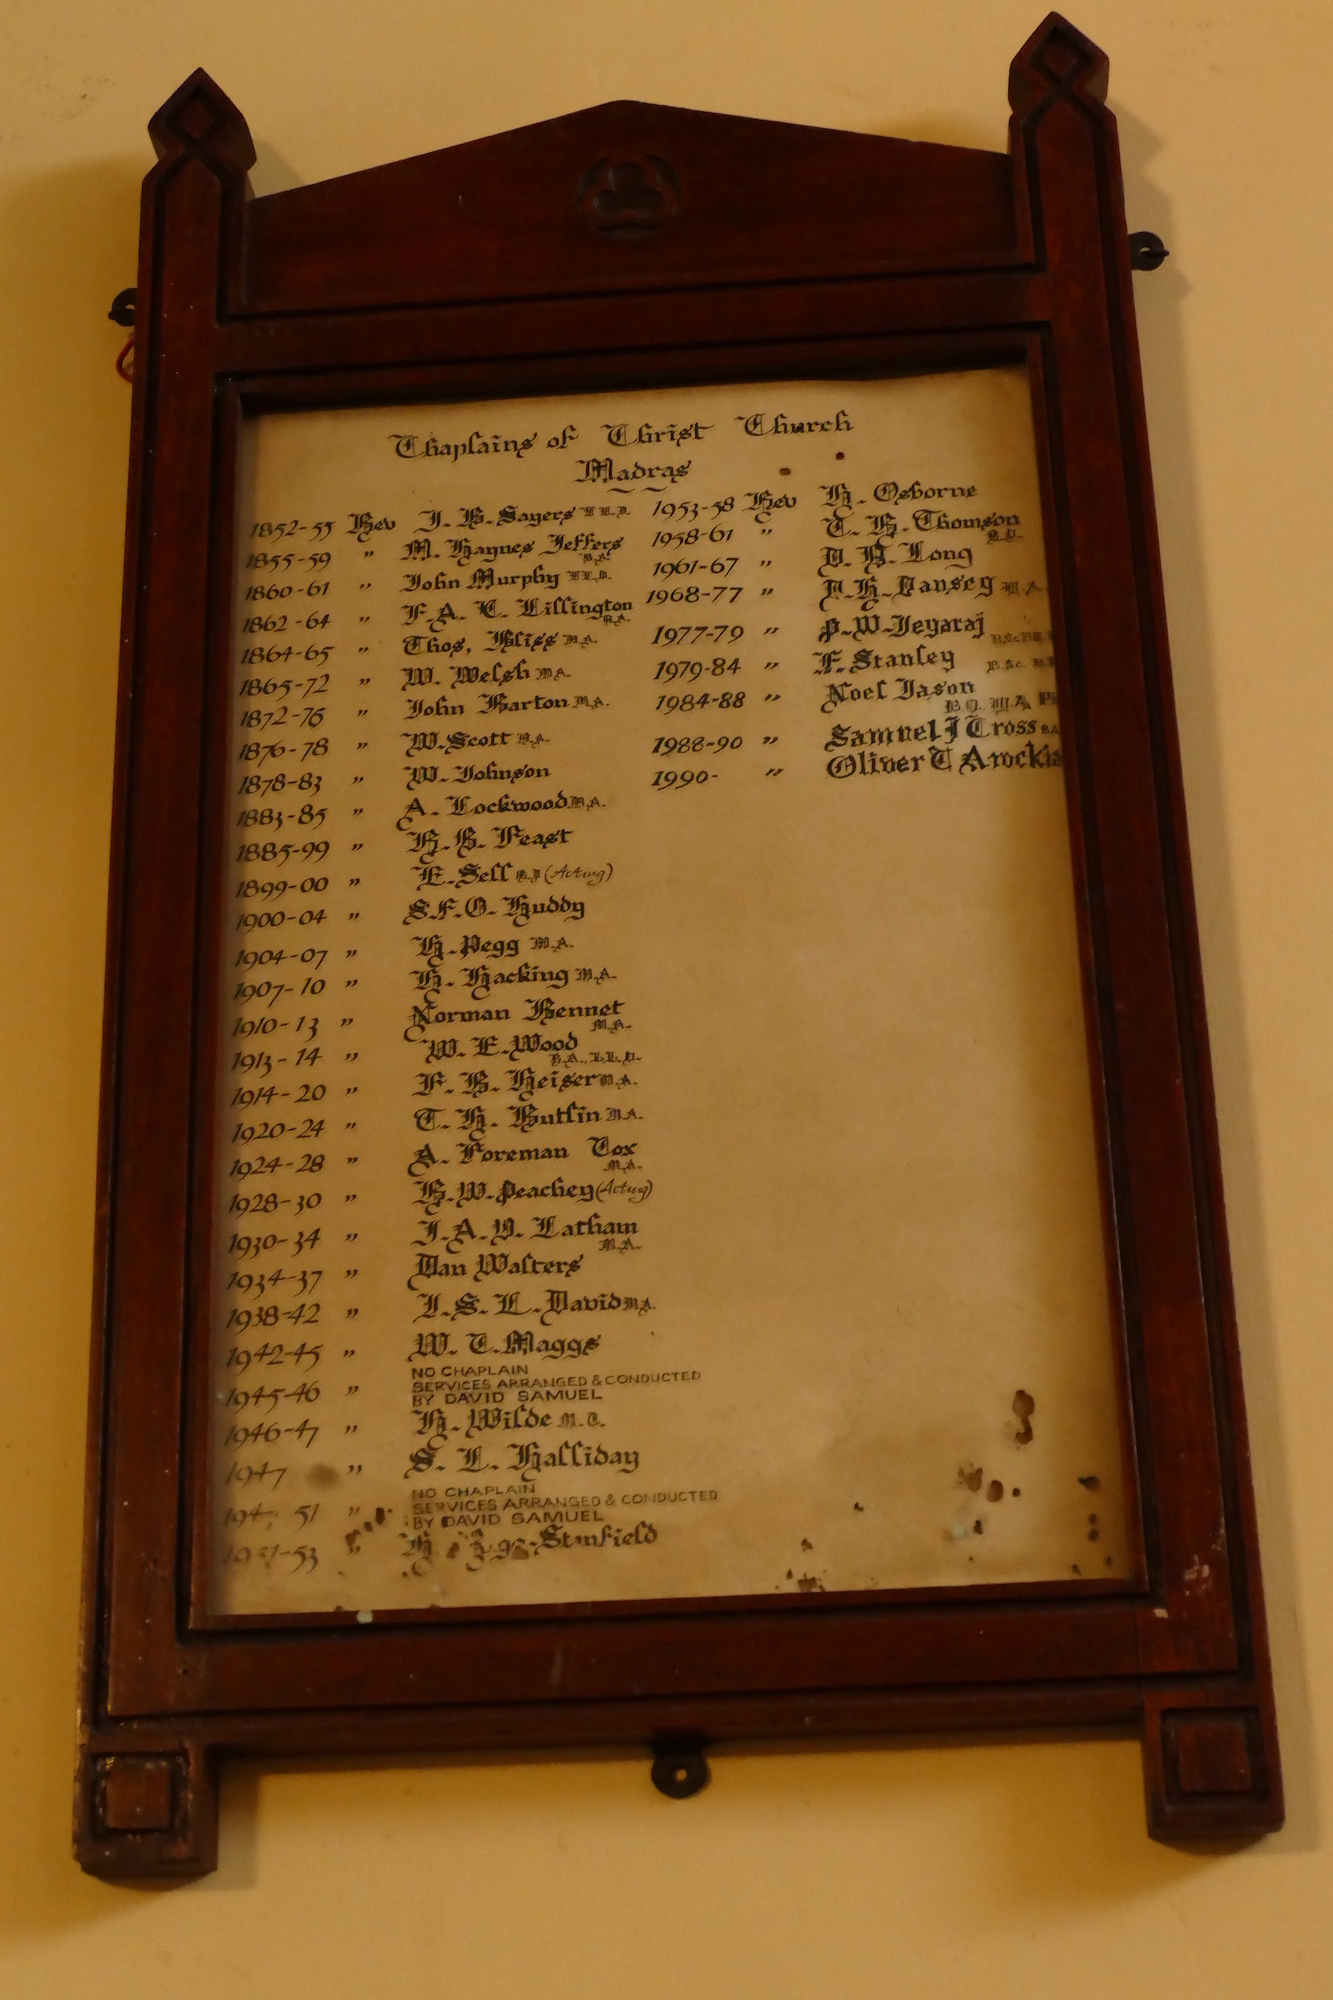 Chaplains of Christ Church
Madras
1852-55 Rev J. B. Sayers LL.D.
1855-59 " M. Haynes Jeffers B.A.
1860-61 " John Murphy LL.D.
1862-64 " F. A. C. Lillington B.A.
1864-65 " Thos, Bliss M.A.
1865-72 " W. Welsh M.A.
1872-76 " John Barton M.A.
1876-78 " W. Scott B.A.
1878-83 " W. Johnson
1883-85 " A. Lockwood M.A.
1885-99 " H. B. Feast
1899-00 " E. Sell B.D (Acting)
1900-04 " S. F. O. Huddy
1904-07 " H. Pegg M.A.
1907-10 " H. Hacking M.A.
1910-13 " Norman Bennet M.A.
1913-14 " W. E. Wood B.A., LL.D.
1914-20 " F. B. Heiser M.A.
1920-24 " T. H. Butlin M.A.
1924-28 " A. Foreman Cox M.A.
1928-30 " H. W. Peachey (Acting)
1930-34 " J. A. D. Latham M.A.
1934-37 " Dan Walters
1938-42 " J. S. L. David M.A.
1942-45 " W. C. Maggs
1945-46 " NO CHAPLAIN
SERVICES ARRANGED & CONDUCTED
BY DAVID SAMUEL
1946-47 " H. Wilde M.C.
1947 " S. L. Halliday
194 51 " NO CHAPLAIN
SERVICES ARRANGED & CONDUCTED
BY DAVID SAMUEL
1951-53 " H -Stanfield
1953-58 Rev H. Osborne
1958-61 " T. B. Thomson B.D.
1961-67 " D. B. Long
1968-77 " D. H. Dansey M.A.
1977-79 " P. W. Jeyaraj
1979-84 " F. Stanley B.Sc.
1984-88 " Noel Jason B.D. M.A
1988-90 " Samuel J Cross
1990- " Oliver T